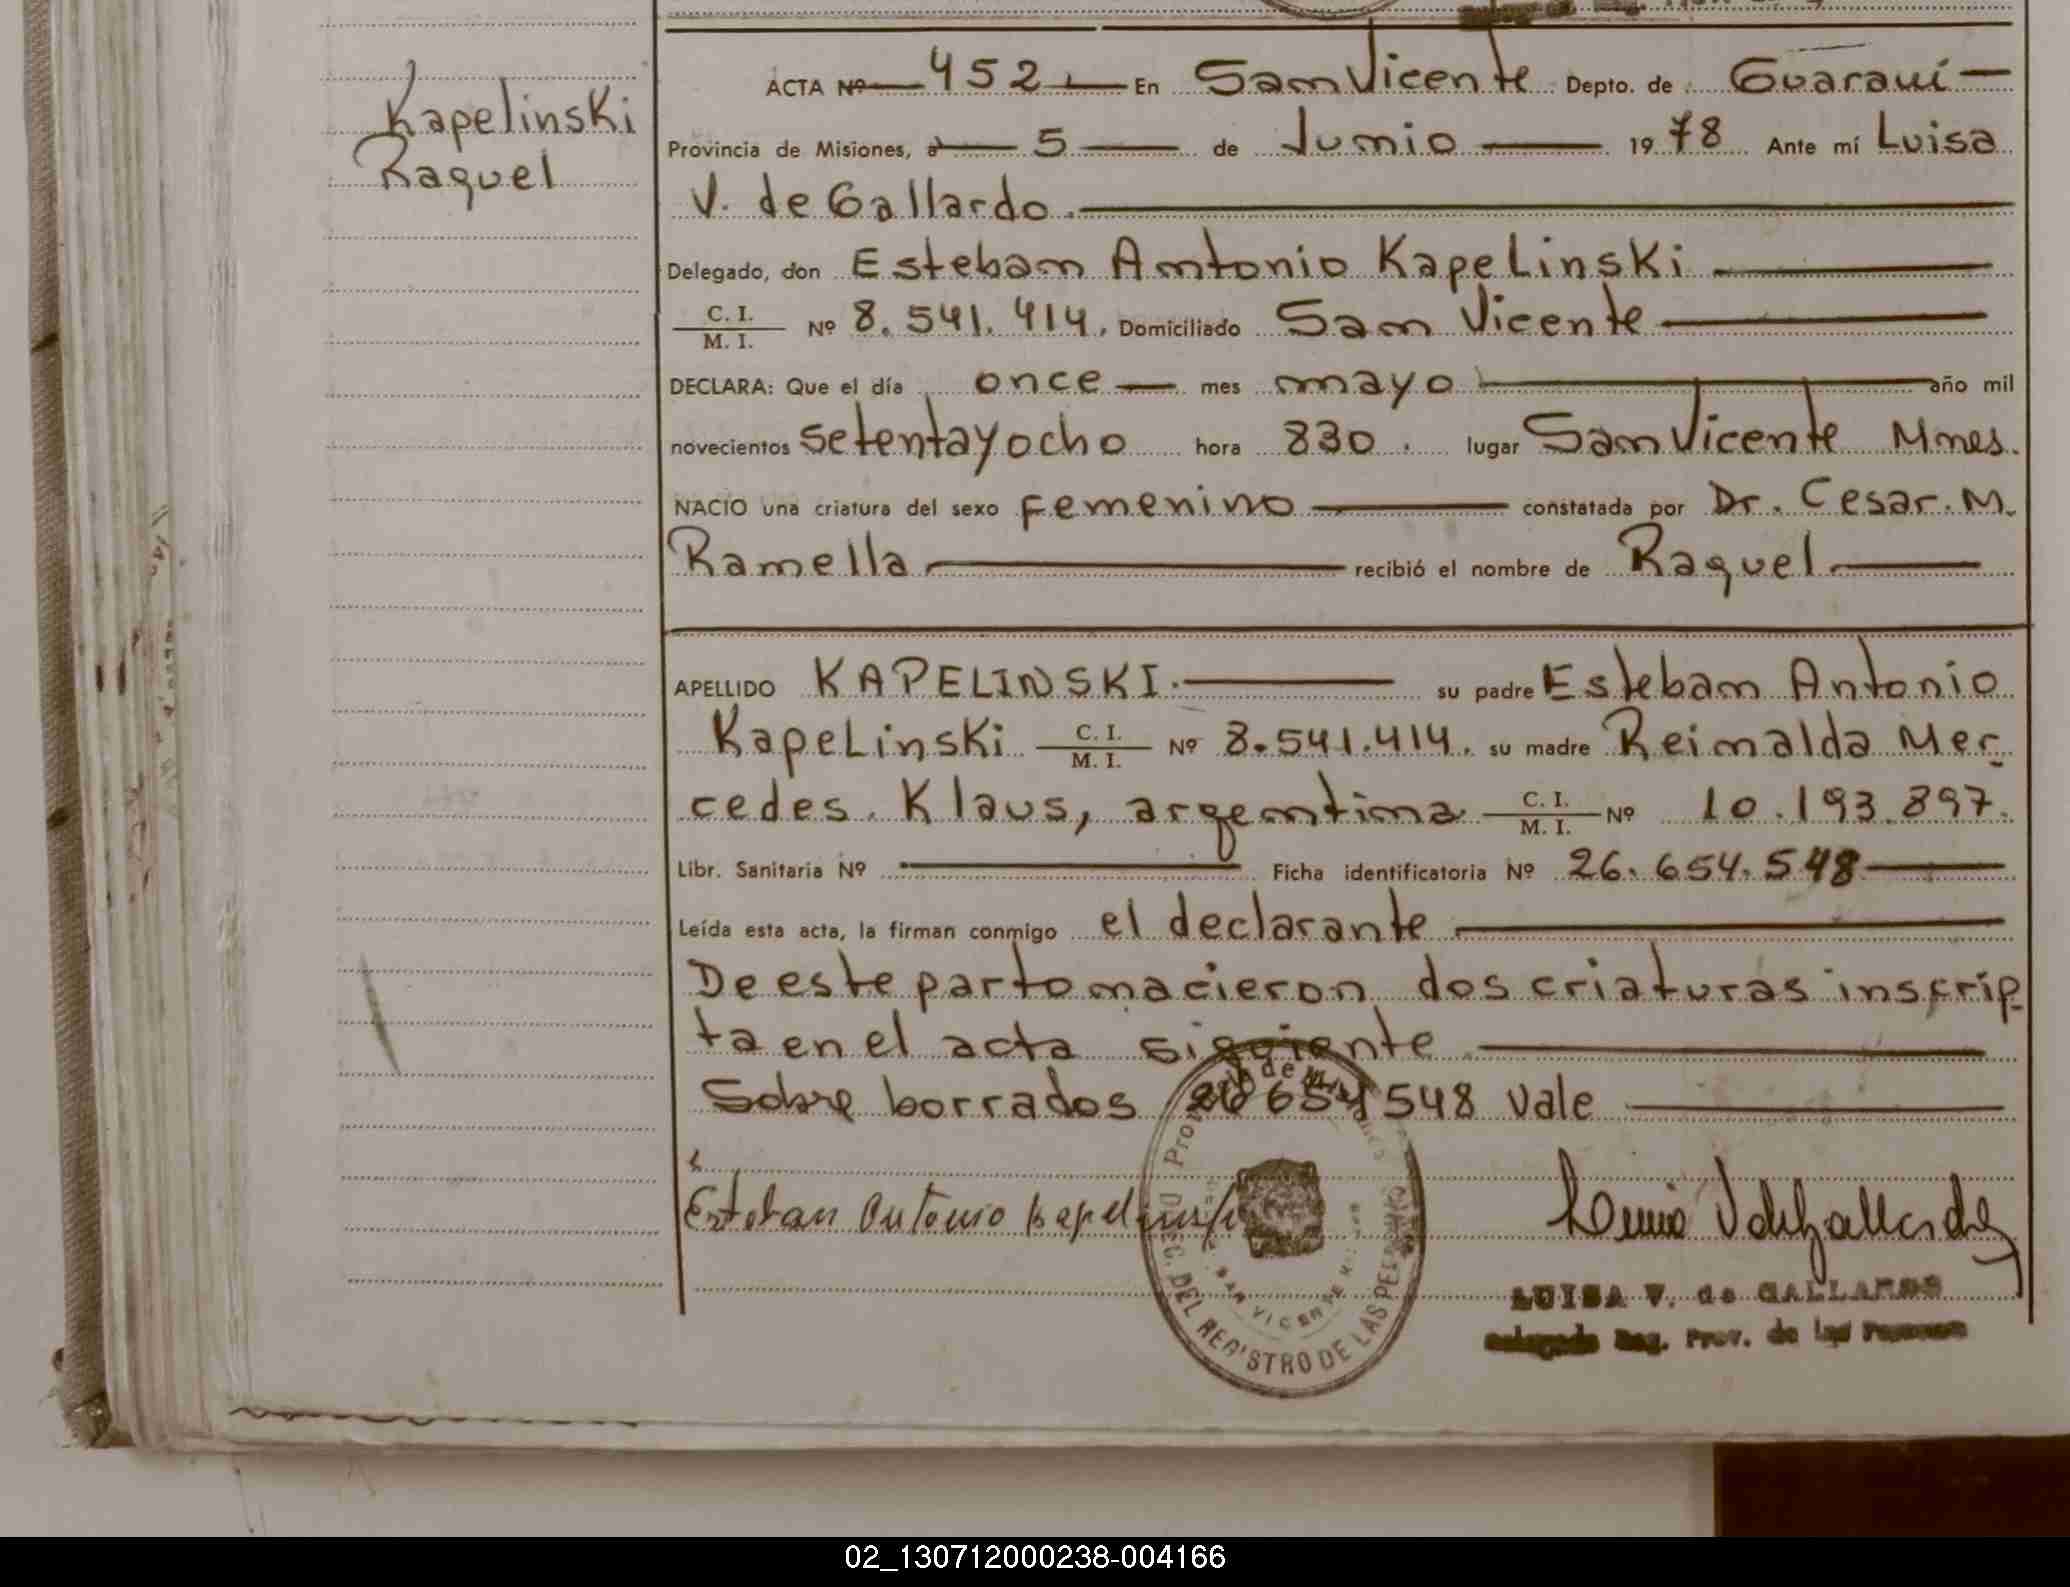 Kapelinski
Raquel
ACTA Nº 452 En San Vicente Depto. de Guaraní
Provincia de Misiones, a 5 de Junio 1978 Ante mí Luisa
V. de Gallardo.
Delegado, don Esteban Antonio Kapelinski
C. I.
M. I. Nº 8.541.414. Domiciliado San Vicente
DECLARA: Que el día once mes mayo año mil
novecientos setentayocho hora 830. lugar San Vicente Mnes.
NACIO una criatura del sexo Femenino constatada por Dr. Cesar. M.
Ramella recibió el nombre de Raquel
APELLIDO KAPELINSKI. su padre Esteban Antonio
Kapelinski C. I. M. I. Nº 8.541.414. su madre Reinalda Mer
cedes. Klaus, argentina C. I. M. I. Nº 10.193.897.
Libr. Sanitaria Nº Ficha identificatoria Nº 26.654.548
Leída esta acta, la firman conmigo el declarante
De este parto nacieron dos criaturas inscrip-
ta en el acta siguiente
Sobre borrados 26654548 vale
Esteban Antonio Kapelinski
LUISA V. de GALLARDO
Delegada Reg. Prov. de las Personas
DEL REGISTRO DE LAS PERSONAS
SAN VICENTE
02_130712000238-004166